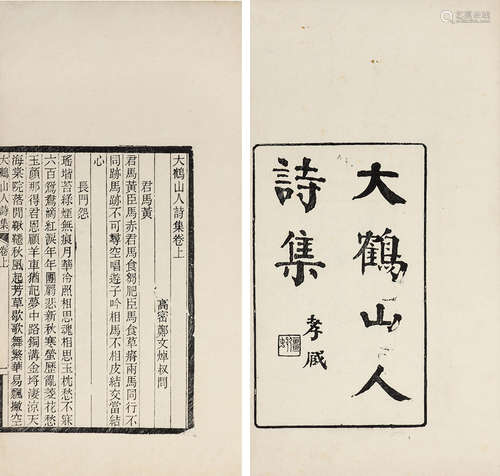 大鶴山人
詩集
孝臧
大鶴山人詩集卷上
高密鄭文焯叔問
君馬黃
君馬黃臣馬赤君馬食芻肥臣馬食草瘠兩馬同行不
同跡馬跡不可尋空唱遊子吟相馬不相皮結交當結
心
長門怨
瑤堦苔綠煙無痕月華冷照相思魂相思玉枕愁不寐
六百鴛鴦滴紅淚年年團扇悲新秋寒螢歷亂芰花愁
玉顏那得君恩顧羊車猶記夢中路銅溝金埒淒涼天
海棠院落閒鞦韆秋風起芳草歇歌舞繁華易飄撇空
大鶴山人詩集 卷上